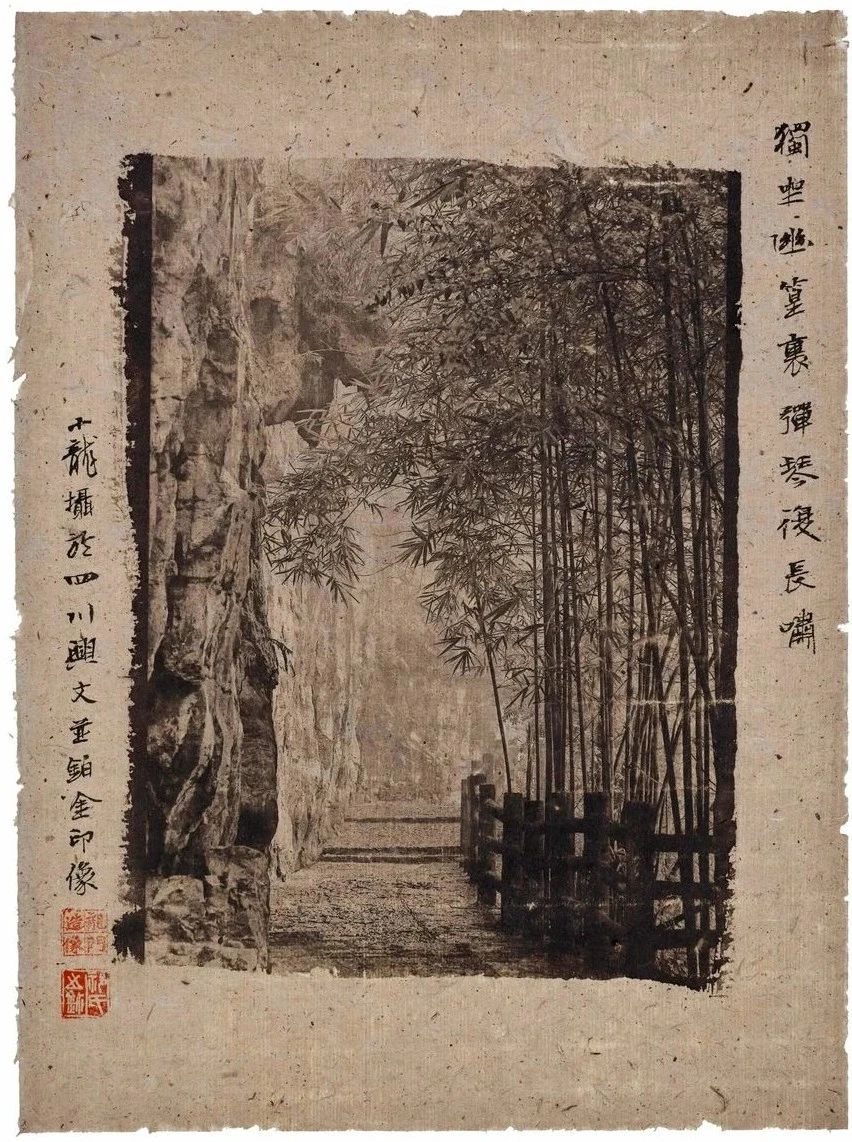 獨坐幽篁裏彈琴復長嘯
小龍攝於四川興文並鉑金印像